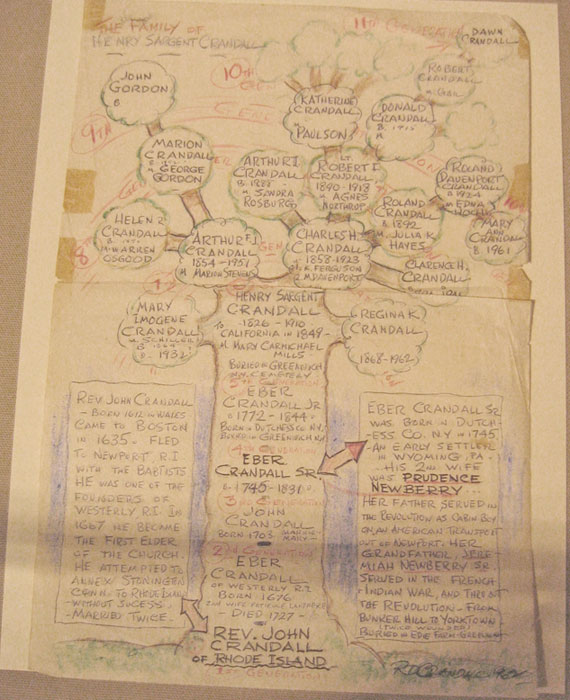 THE FAMILY OF
HENRY SARGENT CRANDALL
11TH GENERATION
DAWN
CRANDALL
ROBERT
CRANDALL
10TH
GEN
JOHN
GORDON
B
KATHERINE
CRANDALL
M.
PAULSON
DONALD
CRANDALL
B. 1915
M.
9TH
GENE
MARION
CRANDALL
M. GEORGE
GORDON
ARTHUR I.
CRANDALL
B. 1888
M. SANDRA
ROSBURG
LT.
ROBERT F.
CRANDALL
1890-1918
M AGNES
NORTHRUP
ROLAND
DAVENPORT
CRANDALL
B. 1924
M EDNA
ROLAND
CRANDALL
B. 1892
M. JULIA K
HAYES
MARY
ANN
CRANDALL
B. 1961
HELEN R
CRANDALL
M WARREN
OSGOOD
8
ARTHUR F
CRANDALL
1854-1951
M. MARION STEVENS
GEN
CHARLES H.
CRANDALL
1858-1923
M. K. FERGUSON
M. M. DAVENPORT
CLARENCE H.
CRANDALL
MARY
IMOGENE
CRANDALL
M. SCHILLER
B
D. 1932
HENRY SARGENT
CRANDALL
1826-1910
TO
CALIFORNIA IN 1849-
M. MARY CARMICHAEL
MILLS
BURIED IN GREENWICH
NY. CEMETERY
REGINA K
CRANDALL
1868-1962
5TH GENERATION
EBER
CRANDALL JR
1772-1844
BORN IN DUTCHESS CO. NY.
BURIED IN GREENWICH NY
4TH GENERATION
EBER
CRANDALL SR
1745-1831
3RD GENERATION
JOHN
CRANDALL
BORN 1703
MARY
2ND GENERATION
EBER
CRANDALL
OF WESTERLY R.I.
BORN 1676
DIED 1727
REV. JOHN
CRANDALL
OF RHODE ISLAND
1ST GENERATION
REV. JOHN CRANDALL
- BORN 1612 IN WALES
CAME TO BOSTON
IN 1635. FLED
TO NEWPORT R.I
WITH THE BABTISTS
HE WAS ONE OF THE
FOUNDERS OF
WESTERLY R.I. IN
1667 HE BECAME
THE FIRST ELDER
OF THE CHURCH.
HE ATTEMPTED TO
ANNEX STONINGTON
CONN. TO RHODE ISLAND
-WITHOUT SUCESS.
-MARRIED TWICE.
EBER CRANDALL SR
WAS BORN IN DUTCH-
ESS CO. N.Y IN 1745
AN EARLY SETTLER
IN WYOMING PA.
HIS 2ND WIFE
WAS PRUDENCE
NEWBERRY...
HER FATHER SERVED IN
THE REVOLUTION AS CABIN BOY
ON AN AMERICAN TRANSPORT
OUT OF NEWPORT. HER
GRANDFATHER, JERE-
MIAH NEWBERRY SR
SERVED IN THE FRENCH
-INDIAN WAR, AND THRU OUT
THE REVOLUTION - FROM
BUNKER HILL TO YORKTOWN
(TWICE WOUNDED)
BURIED IN